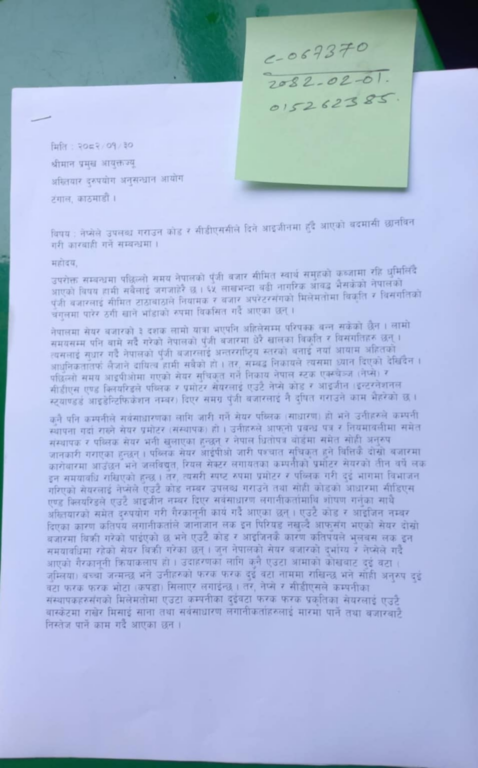 c-067370
2082-02-01.
015262385.
मिति : २०८२/०१/३०
श्रीमान प्रमुख आयुक्तज्यू
अख्तियार दुरुपयोग अनुसन्धान आयोग
टंगाल, काठमाडौं ।
विषय : नेप्सेले उपलब्ध गराउन कोड र सीडीएससीले दिने आइजीनमा हुँदै आएको बदमासी छानविन
गरी कारबाही गर्ने सम्बन्धमा ।
महोदय,
उपरोक्त सम्बन्धमा पछिल्लो समय नेपालको पुँजी बजार सीमित स्वार्थ समुहको कब्जामा रहि धुमिलिँदै
आएको विषय हामी सबैलाई जगजाहेरै छ । ६५ लाखभन्दा बढी नागरिक आवद्ध भैसकेको नेपालको
पुँजी बजारलाई सीमित टाठाबाठाले नियामक र बजार अपरेटरसँगको मिलेमतोमा विकृति र विसंगतिको
चंगुलमा पारेर ठगी खाने भाँडोको रुपमा विकसित गर्दै आएका छन् ।
नेपालमा सेयर बजारको ३ दशक लामो यात्रा भएपनि अहिलेसम्म परिपक्क बन्न सकेको छैन । लामो
समयसम्म पनि बामे सर्दै गरेको नेपालको पुँजी बजारमा धेरै खालका विकृति र विसंगतिहरु छन् ।
त्यसलाई सुधार गर्दै नेपालको पुँजी बजारलाई अन्तरराष्ट्रिय स्तरको बनाई नयाँ आयाम सहितको
आधुनिकतातर्फ लैजाने दायित्व हामी सबैको हो । तर, सम्बद्ध निकायले त्यसमा ध्यान दिएको देखिँदैन ।
पछिल्लो समय आइपीओमा गएको सेयर सुचिकृत गर्ने निकाय नेपाल स्टक एक्स्चेञ्ज (नेप्से) र
सीडीएस एण्ड क्लियरिङले पब्लिक र प्रमोटर सेयरलाई एउटै नेप्से कोड र आइजीन (इन्टरनेशनल
स्ट्याण्डर्ड आइडेन्टिफिकेशन नम्बर) दिएर समग्र पुँजी बजारलाई नै दुषित गराउने काम भैरहेको छ ।
कुनै पनि कम्पनीले सर्वसाधारणका लागि जारी गर्ने सेयर पब्लिक (साधारण) हो भने उनीहरुले कम्पनी
स्थापना गर्दा राख्ने सेयर प्रमोटर (संस्थापक) हो । उनीहरुले आफ्नो प्रबन्ध पत्र र नियमावलीमा समेत
संस्थापक र पब्लिक सेयर भनी खुलाएका हुन्छन् र नेपाल धितोपत्र बोर्डमा समेत सोही अनुरुप
जानकारी गराएका हुन्छन् । पब्लिक सेयर आईपीओ जारी पश्चात सुचिकृत हुने वित्तिकै दोस्रो बजारमा
कारोबारमा आउँछन् भने जलविद्युत, रियल सेक्टर लगायतका कम्पनीको प्रमोटर सेयरको तीन वर्षे लक
इन समयावधि राखिएको हुन्छ । तर, त्यसरी स्पष्ट रुपमा प्रमोटर र पब्लिक गरी दुई भागमा विभाजन
गरिएको सेयरलाई नेप्सेले एउटै कोड नम्बर उपलब्ध गराउने तथा सोही कोडको आधारमा सीडिएस
एण्ड क्लियरिङले एउटै आइजीन नम्बर दिएर सर्वसाधारण लगानीकर्तामाथि शोषण गर्नुका साथै
अख्तियारको समेत दुरुपयोग गरी गैरकानूनी कार्य गर्दै आएका छन् । एउटै कोड र आइजिन नम्बर
दिएका कारण कतिपय लगानीकर्ताले जानाजान लक इन पिरियड नखुल्दै आफूसँग भएको सेयर दोस्रो
बजारमा बिक्री गरेको पाईएको छ भने एउटै कोड र आइजिनकै कारण कतिपयले भुलबस लक इन
समयावधिमा रहेको सेयर बिक्री गरेका छन् । जुन नेपालको सेयर बजारको दुर्भाग्य र नेप्सेले गर्दै
आएको गैरकानूनी क्रियाकलाप हो । उदाहरणका लागि कुनै एउटा आमाको कोखबाट दुई वटा (
जुम्लिया) बच्चा जन्मन्छ भने उनीहरुको फरक फरक दुई वटा नाममा राखिन्छ भने सोही अनुरुप दुई
वटा फरक फरक भोटो (कपडा) सिलाएर लगाइन्छ । तर, नेप्से र सीडीएसले कम्पनीका
संस्थापकहरुसँगको मिलेमतोमा एउटा कम्पनीका दुईवटा फरक फरक प्रकृतिका सेयरलाई एउटै
बास्केटमा राखेर मिसाई साना तथा सर्वसाधारण लगानीकर्ताहरुलाई मारमा पार्ने तथा बजारबाटै
निस्तेज पार्ने काम गर्दै आएका छन् ।